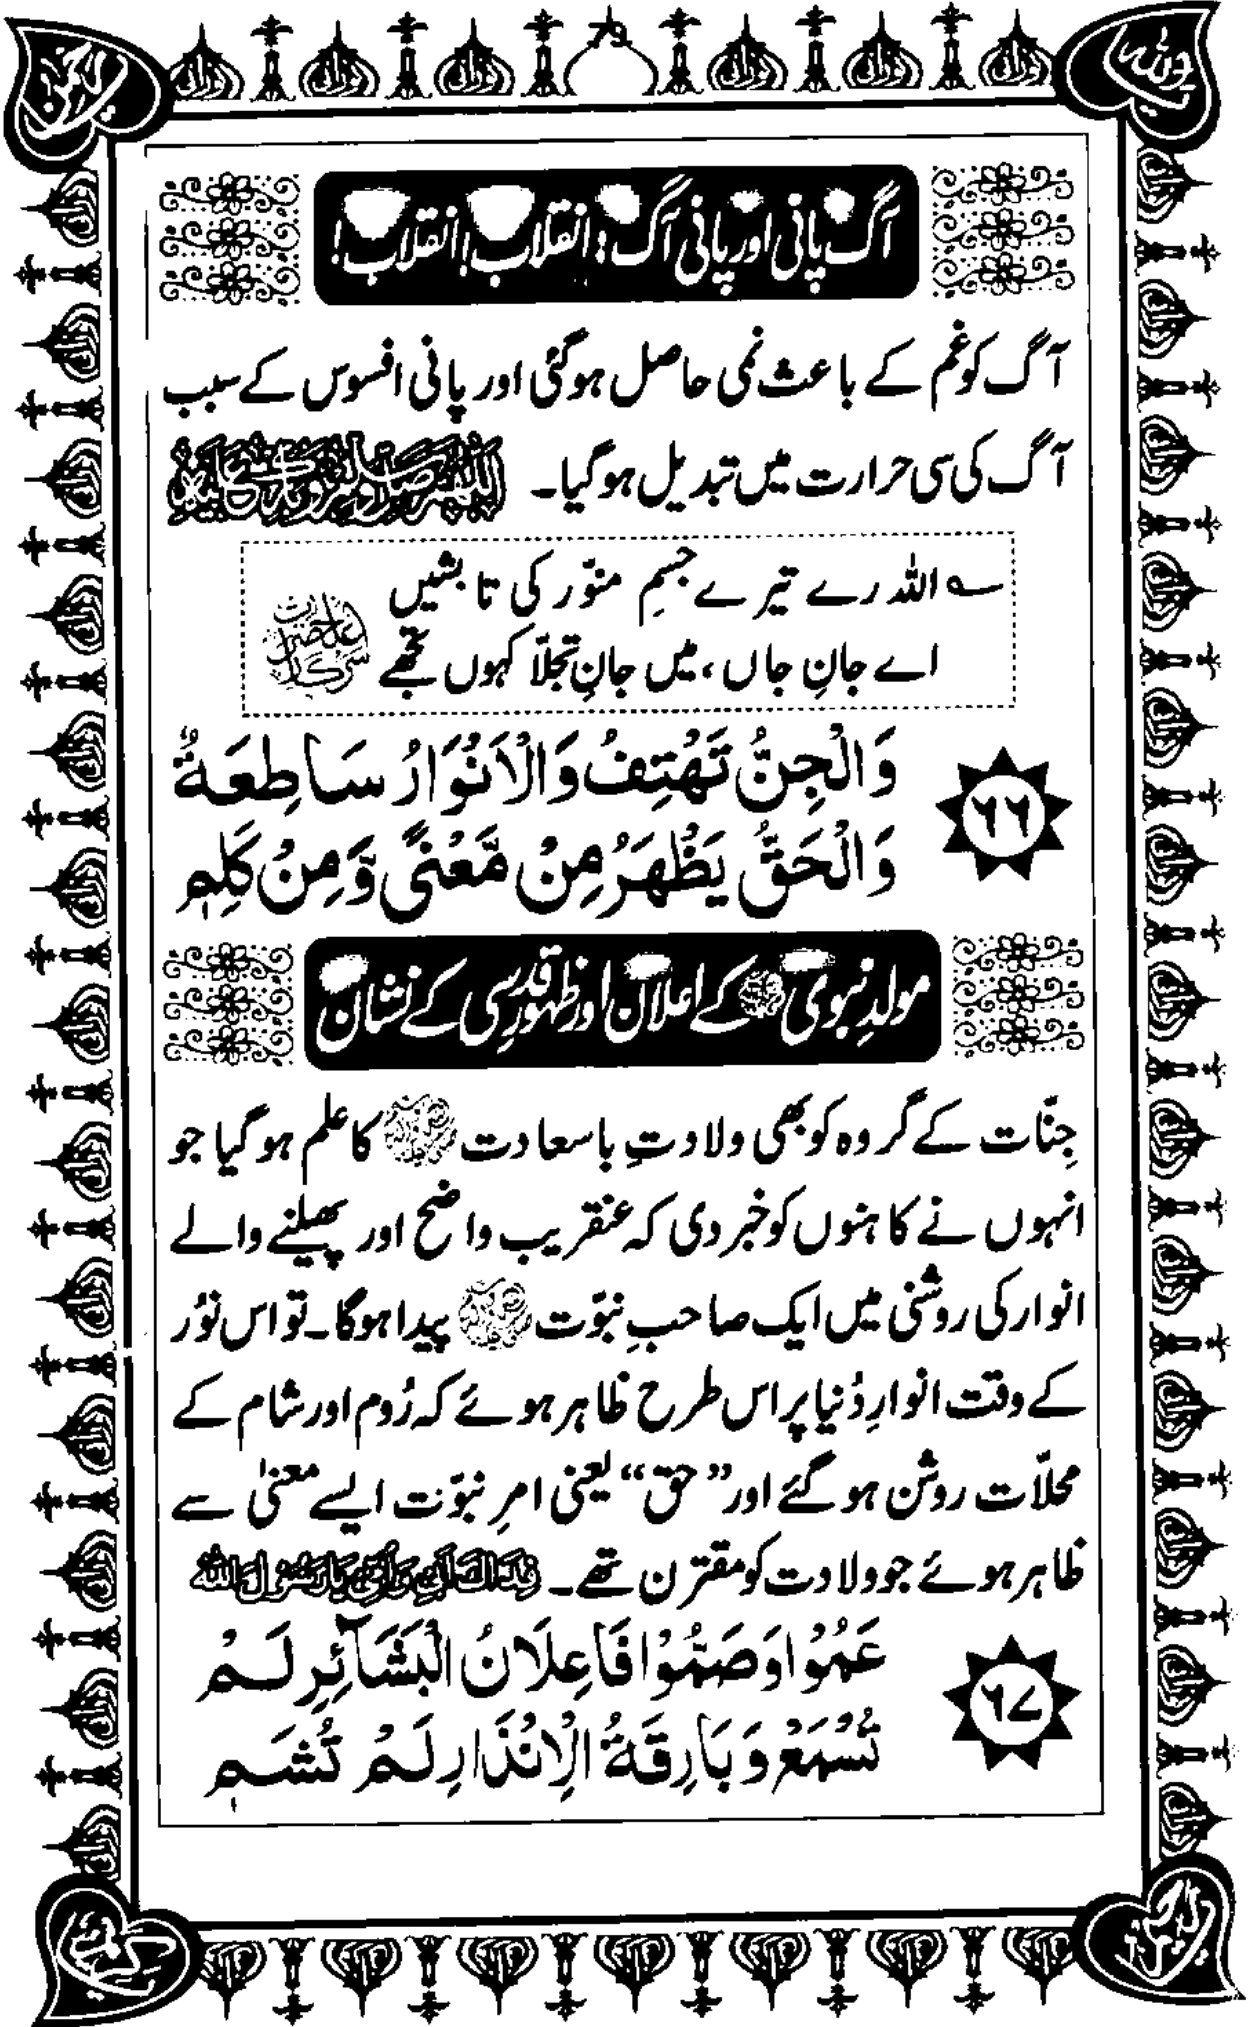 79
آگ پانی اور پانی آگ: انقلاب! انقلاب!
آگ کو غم کے باعث نمی حاصل ہوگئی اور پانی افسوس کے سبب
آگ کی سی حرارت میں تبدیل ہوگیا۔
؎ اللہ رے تیرے جسمِ منوّر کی تابشیں
اے جانِ جاں، میں جانِ تجلّا کہوں تجھے
وَالْجِنُّ تَهْتِفُ وَالْاَنْوَارُ سَاطِعَةٌ
۶۶
وَالْحَقُّ يَظْهَرُ مِنْ مَّعْنًى وَّمِنْ كَلِمِ
مولدِ نبوی ﷺ کے اعلان اور ظہورِ قدسی کے نشان
جِنّات کے گروہ کو بھی ولادتِ باسعادت ﷺ کا علم ہوگیا جو
انہوں نے کاہنوں کو خبر دی کہ عنقریب واضح اور پھیلنے والے
انوار کی روشنی میں ایک صاحبِ نبوّت ﷺ پیدا ہوگا۔ تو اس نوُر
کے وقت انوارِ دُنیا پر اس طرح ظاہر ہوئے کہ رُوم اور شام کے
محلاّت روشن ہوگئے اور ”حق“ یعنی امرِ نبوّت ایسے معنیٰ سے
ظاہر ہوئے جو ولادت کو مقترن تھے۔ فِدَاكَ اَبِيْ وَاُمِّيْ يَا رَسُوْلَ اللّٰه
عَمُوْا وَصَمُّوْا فَاِعْلَانُ الْبَشَآئِرِ لَمْ
۶۷
تُسْمَعْ وَبَارِقَةُ الْاِنْذَارِ لَمْ تُشَمِ